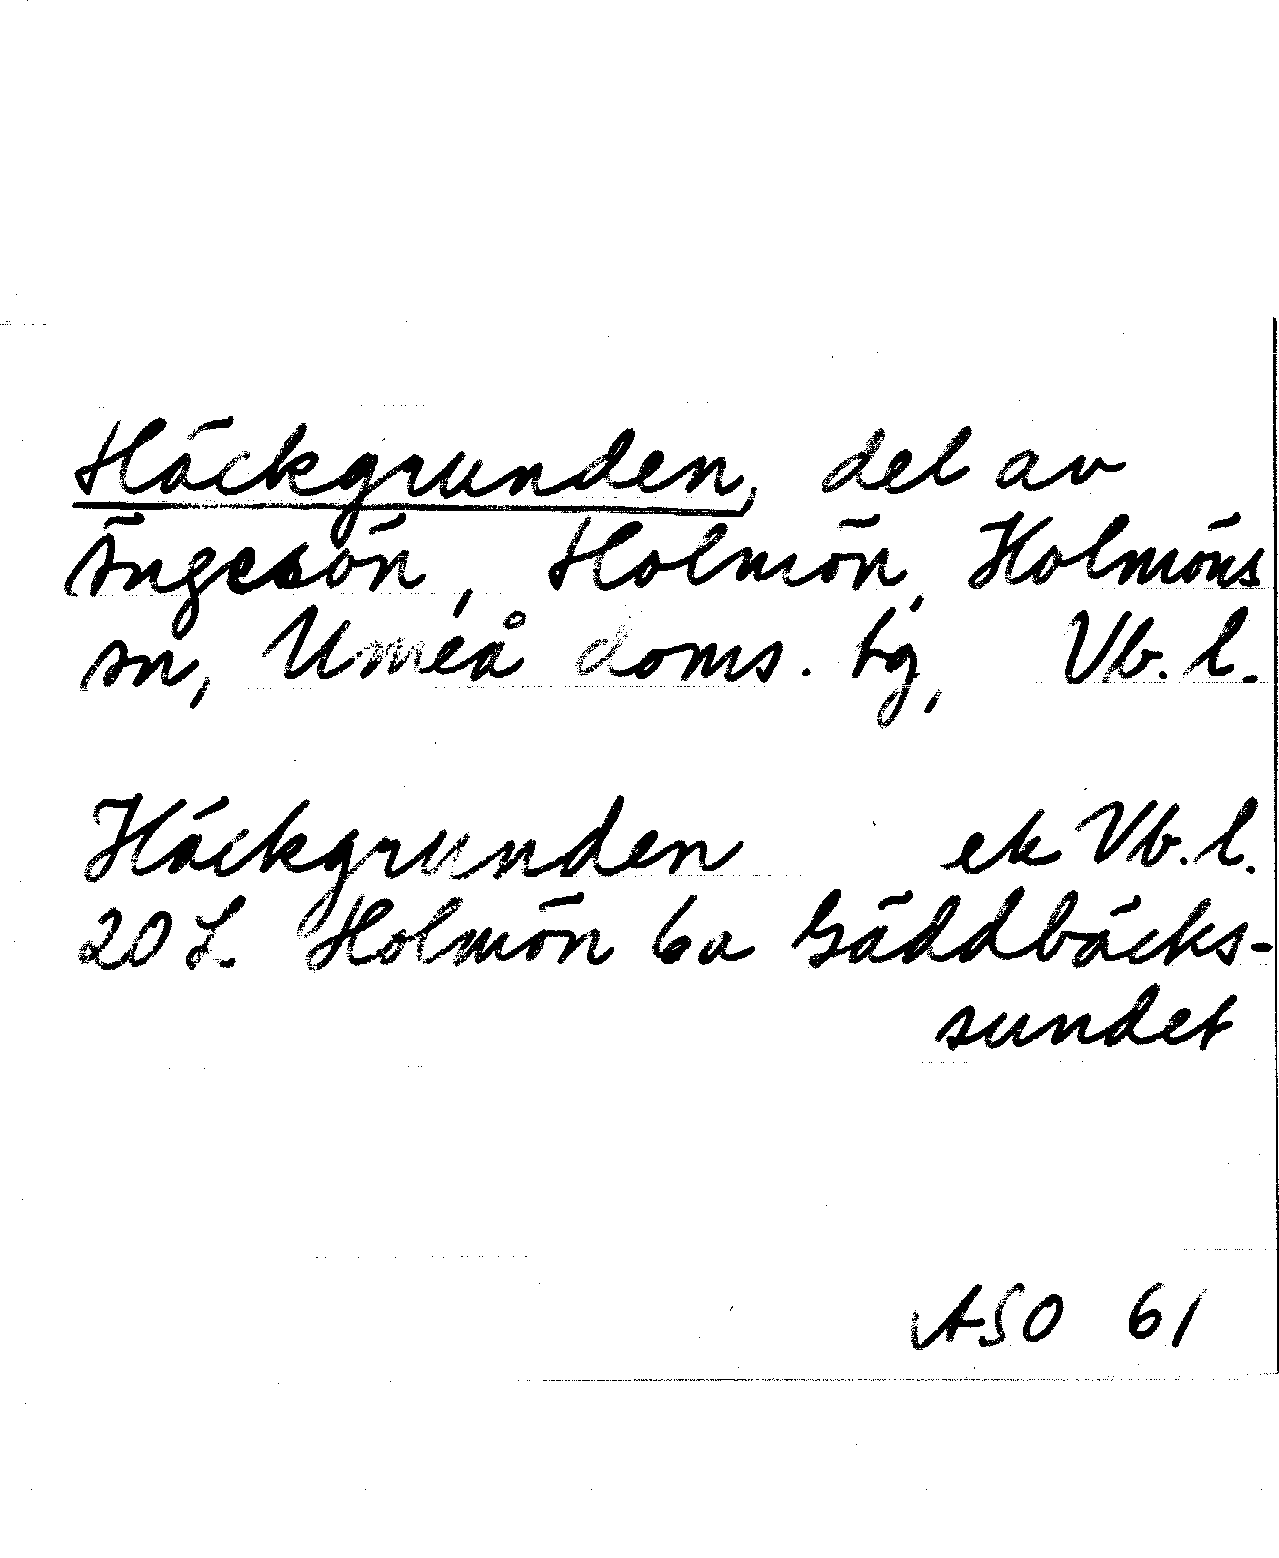 Häckgrunden, del av
Ängesön, Holmön, Holmöns
sn, Umeå doms. tg, Vb. l.
Häckgrunden ek Vb. l.
20 L. Holmön 6a Gäddbäcks-
sundet
ASO 61